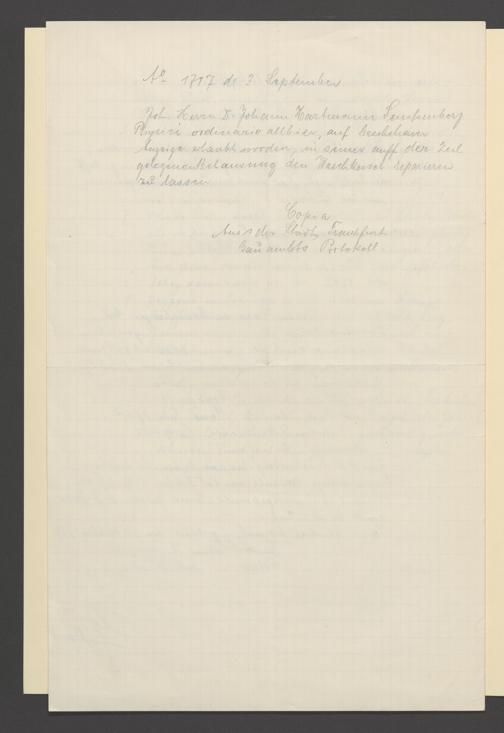 Ao 1717 d. 3. September
Joh. Herrn D. Johann Hartmann Senckenberg
Physici ordinario allhier, auf beschehene
Anzeige erlaubt worden, in seiner auff der Zeil
gelegenen Behausung den Waschkessel reparieren
zu lassen
Copia
Aus der Stadt Frankfurt
Bauambts Protokoll